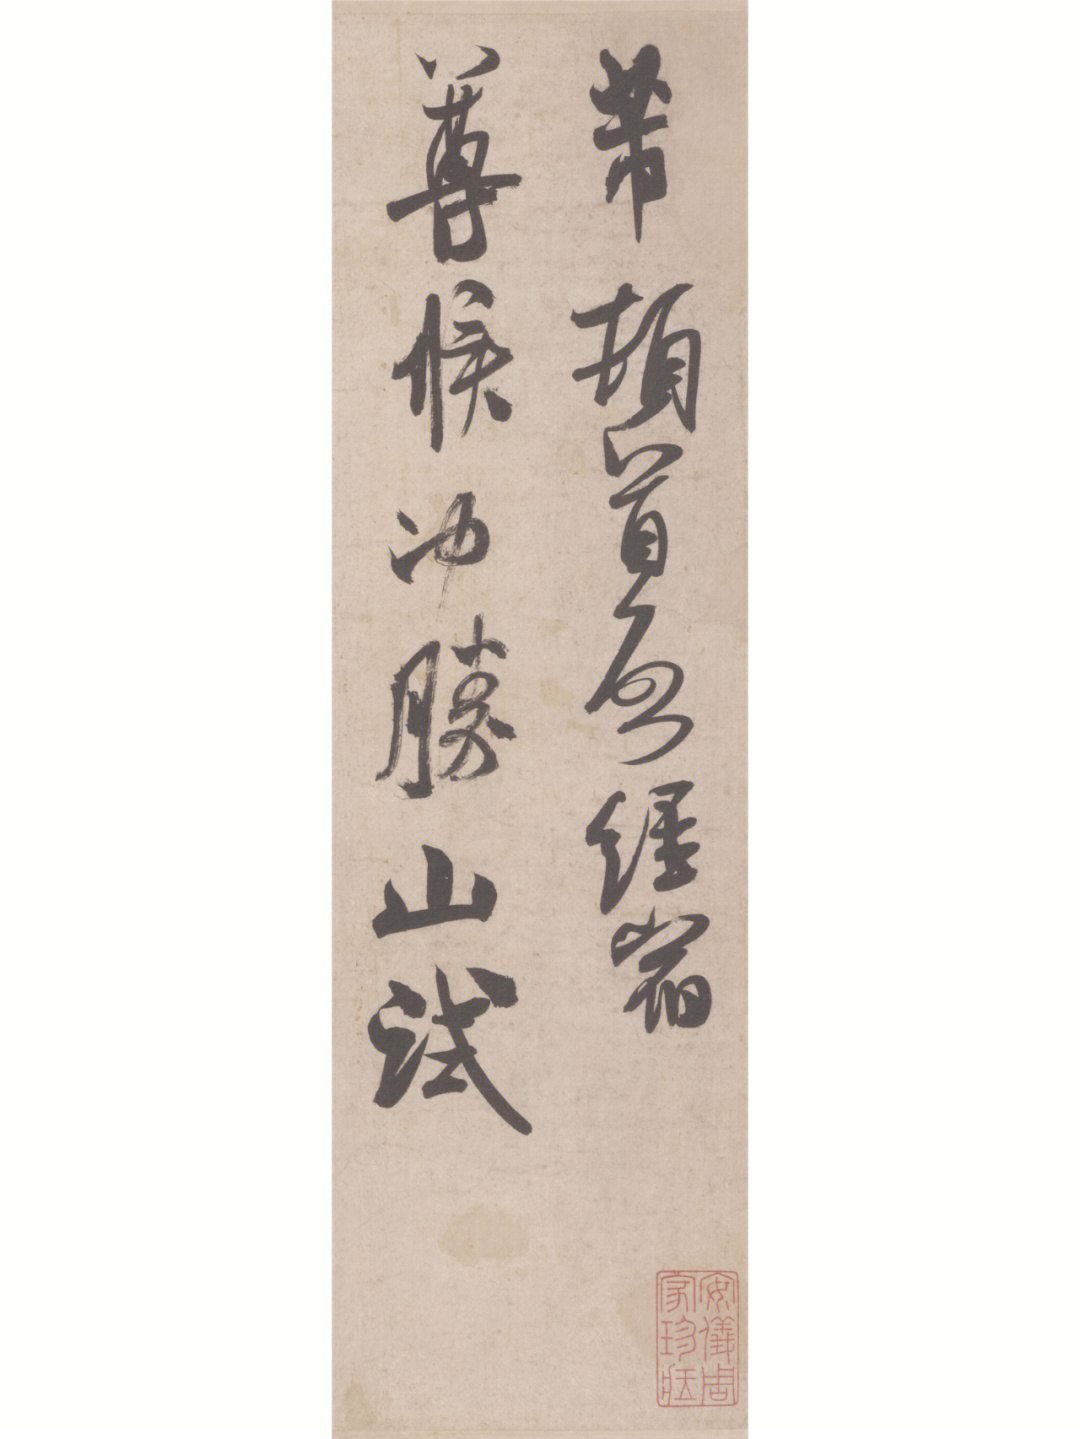 芾頓首啓經宿
尊候冲勝山試
安儀周
家珍藏